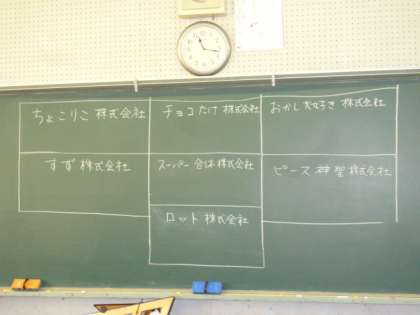 ちょこりこ 株式会社
チョコだけ 株式会社
おかし大好き 株式会社
すず 株式会社
スーパー合体株式会社
ピース 神聖 株式会社
ロット 株式会社